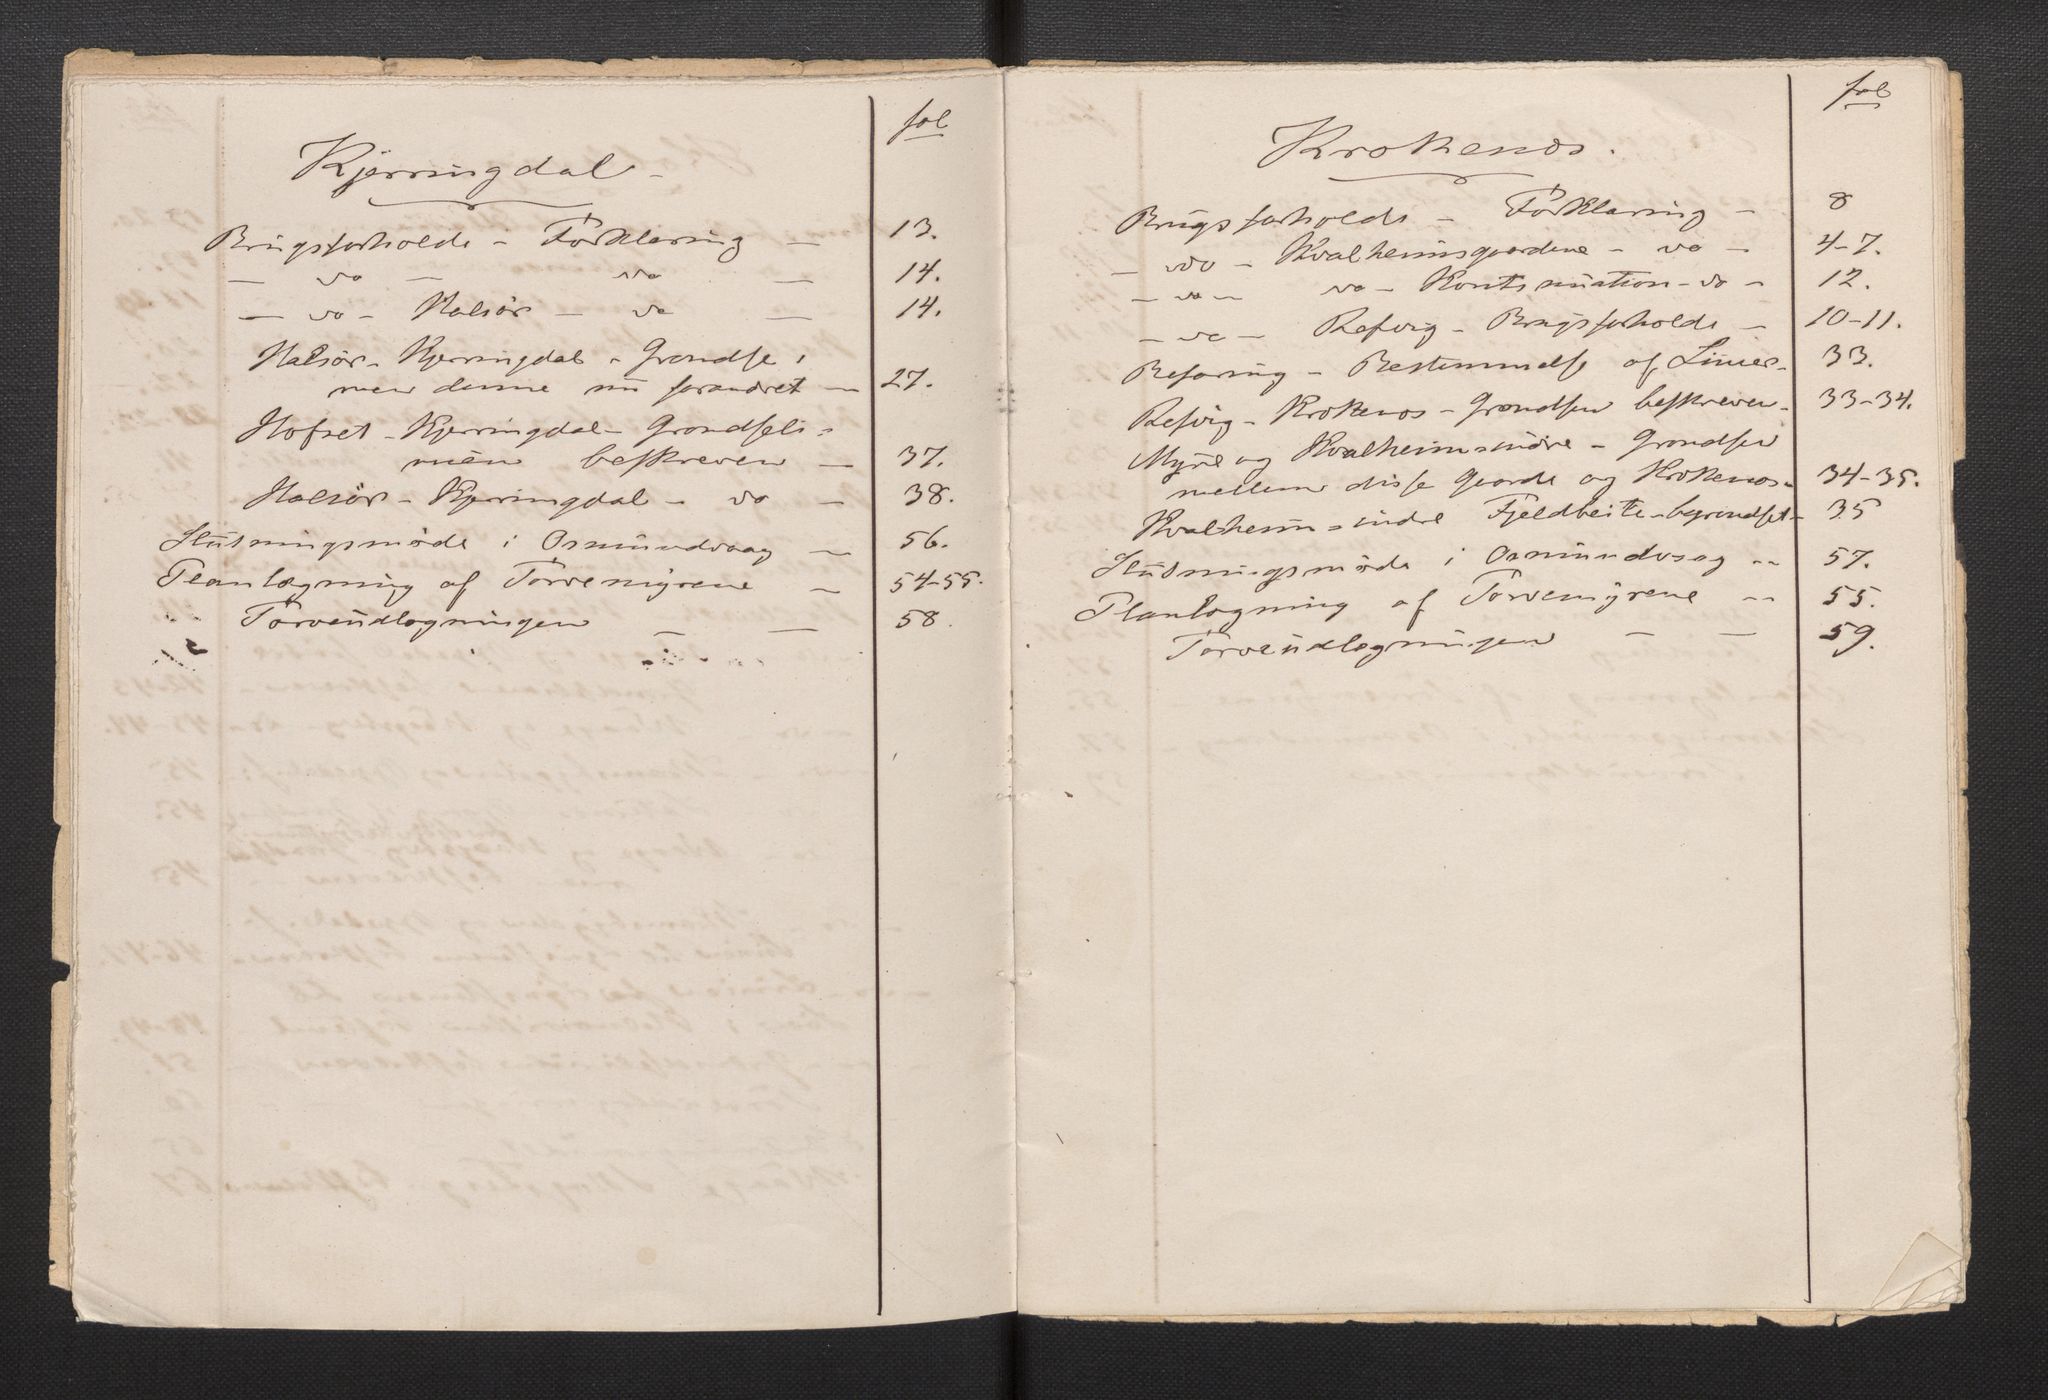 fol
Kjerringdal
Brugsforholds - Forklaring - 13.
- do - do - 14.
- do - Halsör - do - 14.
Halsör - Kjerringdal - Grændse i
men denne nu forandret - 27.
Hofset - Kjerringdal - Grændseli=
nien beskreven - 37.
Halsör - Kjerringdal - do - 38.
Slutningsmøde i Osmundvaag - 56.
Planlægning af Torvemyrene - 54-55.
Torveudlægningen - - 58.
fol
Krokenæs.
Brugsforholds - Forklaring - 8
- do - Kvalheimsgaardene - do - 4-7.
- do - do - Kontinuation - do - 12.
- do - Refvig - Brugsforholds - 10-11.
Befaring - Bestemmelse af Linier - 33.
Refvig - Krokenæs - Grændsen beskreven - 33-34.
Myre og Kvalheim indre - Grændsen
mellem disse Gaarde og Krokenæs - 34-35.
Kvalheim indre Fjeldbeite - begrændset - 35
Slutningsmøde i Osmundvaag - 57.
Planlægning af Torvemyrene - 55.
Torveudlægningen - - 59.